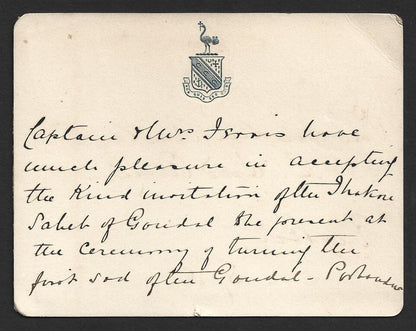 Captain & Mrs. have
much pleasure in accepting
the kind invitation of the Thakore
Saheb of Gondal to be present at
the ceremony of turning the
first sod of the Gondal - Porbandar